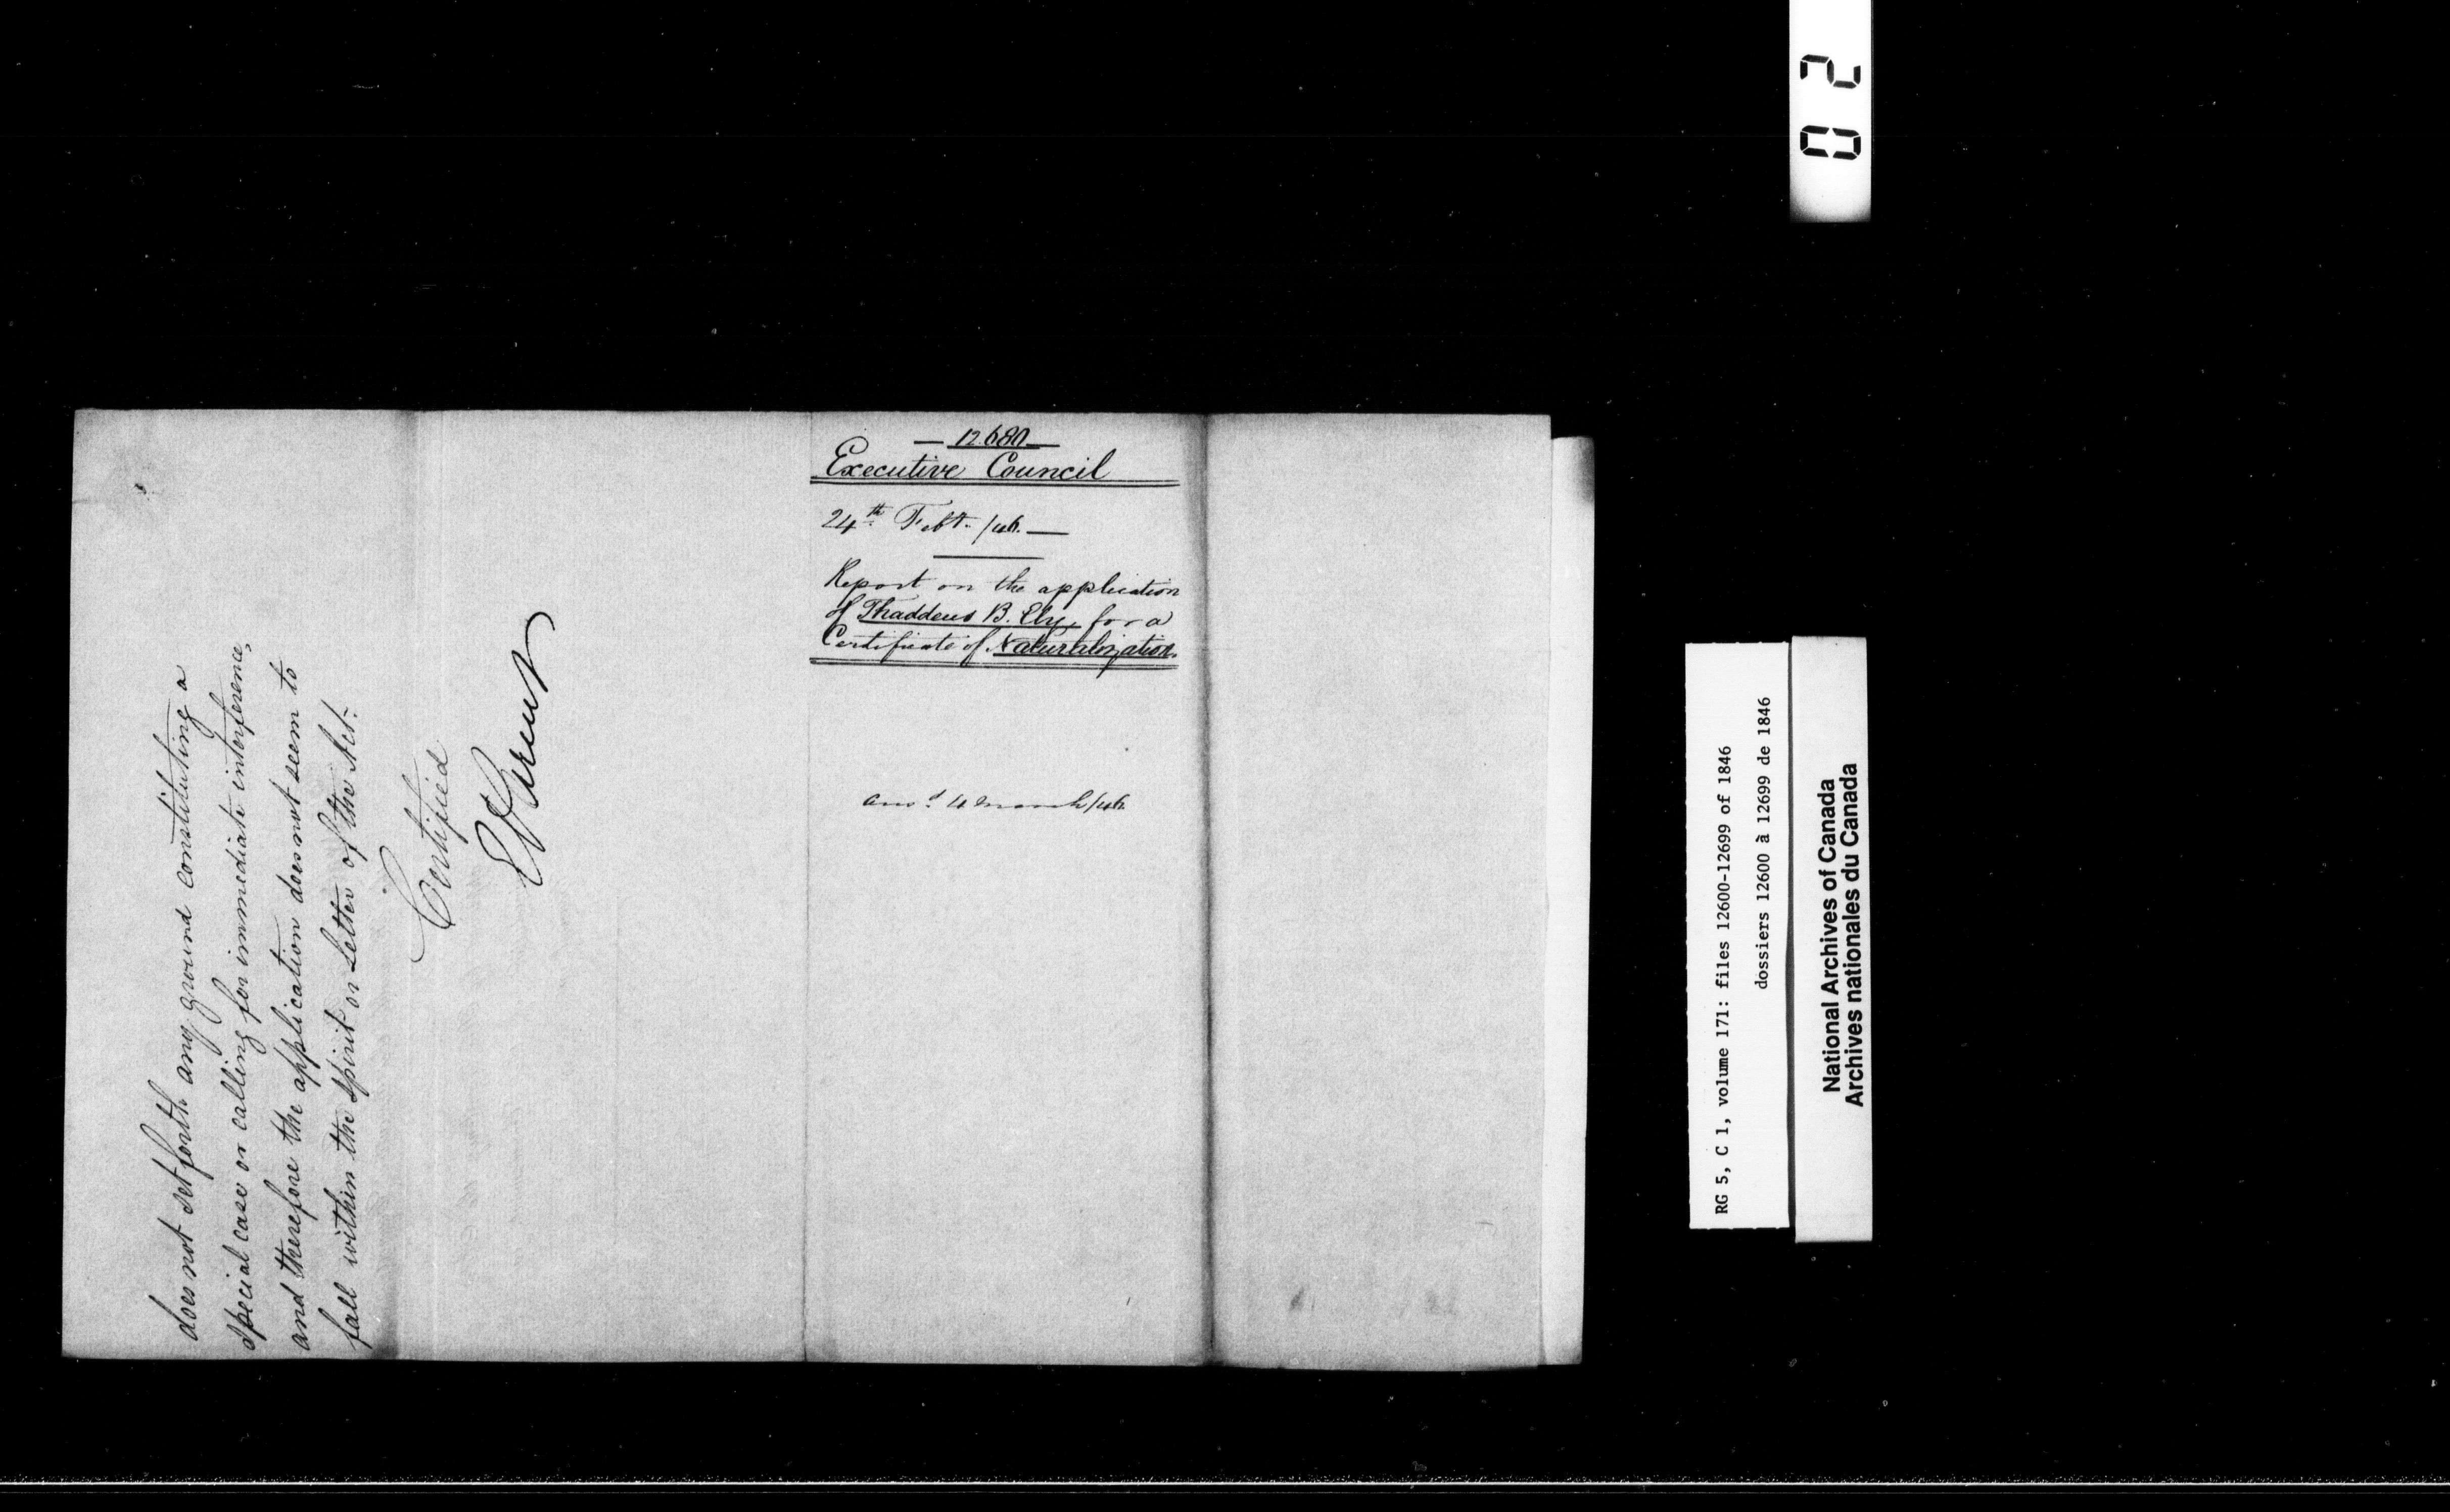 does not set forth any ground constituting a
special case or calling for immediate interference,
and therefore the application does not seem to
fall within the spirit or letter of the Act.
Certified
— 12.680 —
Executive Council
24th Feby. /46. —
Report on the application
of Thaddeus B. Ely, for a
Certificate of Naturalization.
ansd. 4 March/46
02
RG 5, C 1, volume 171: files 12600-12699 of 1846
dossiers 12600 à 12699 de 1846
National Archives of Canada
Archives nationales du Canada